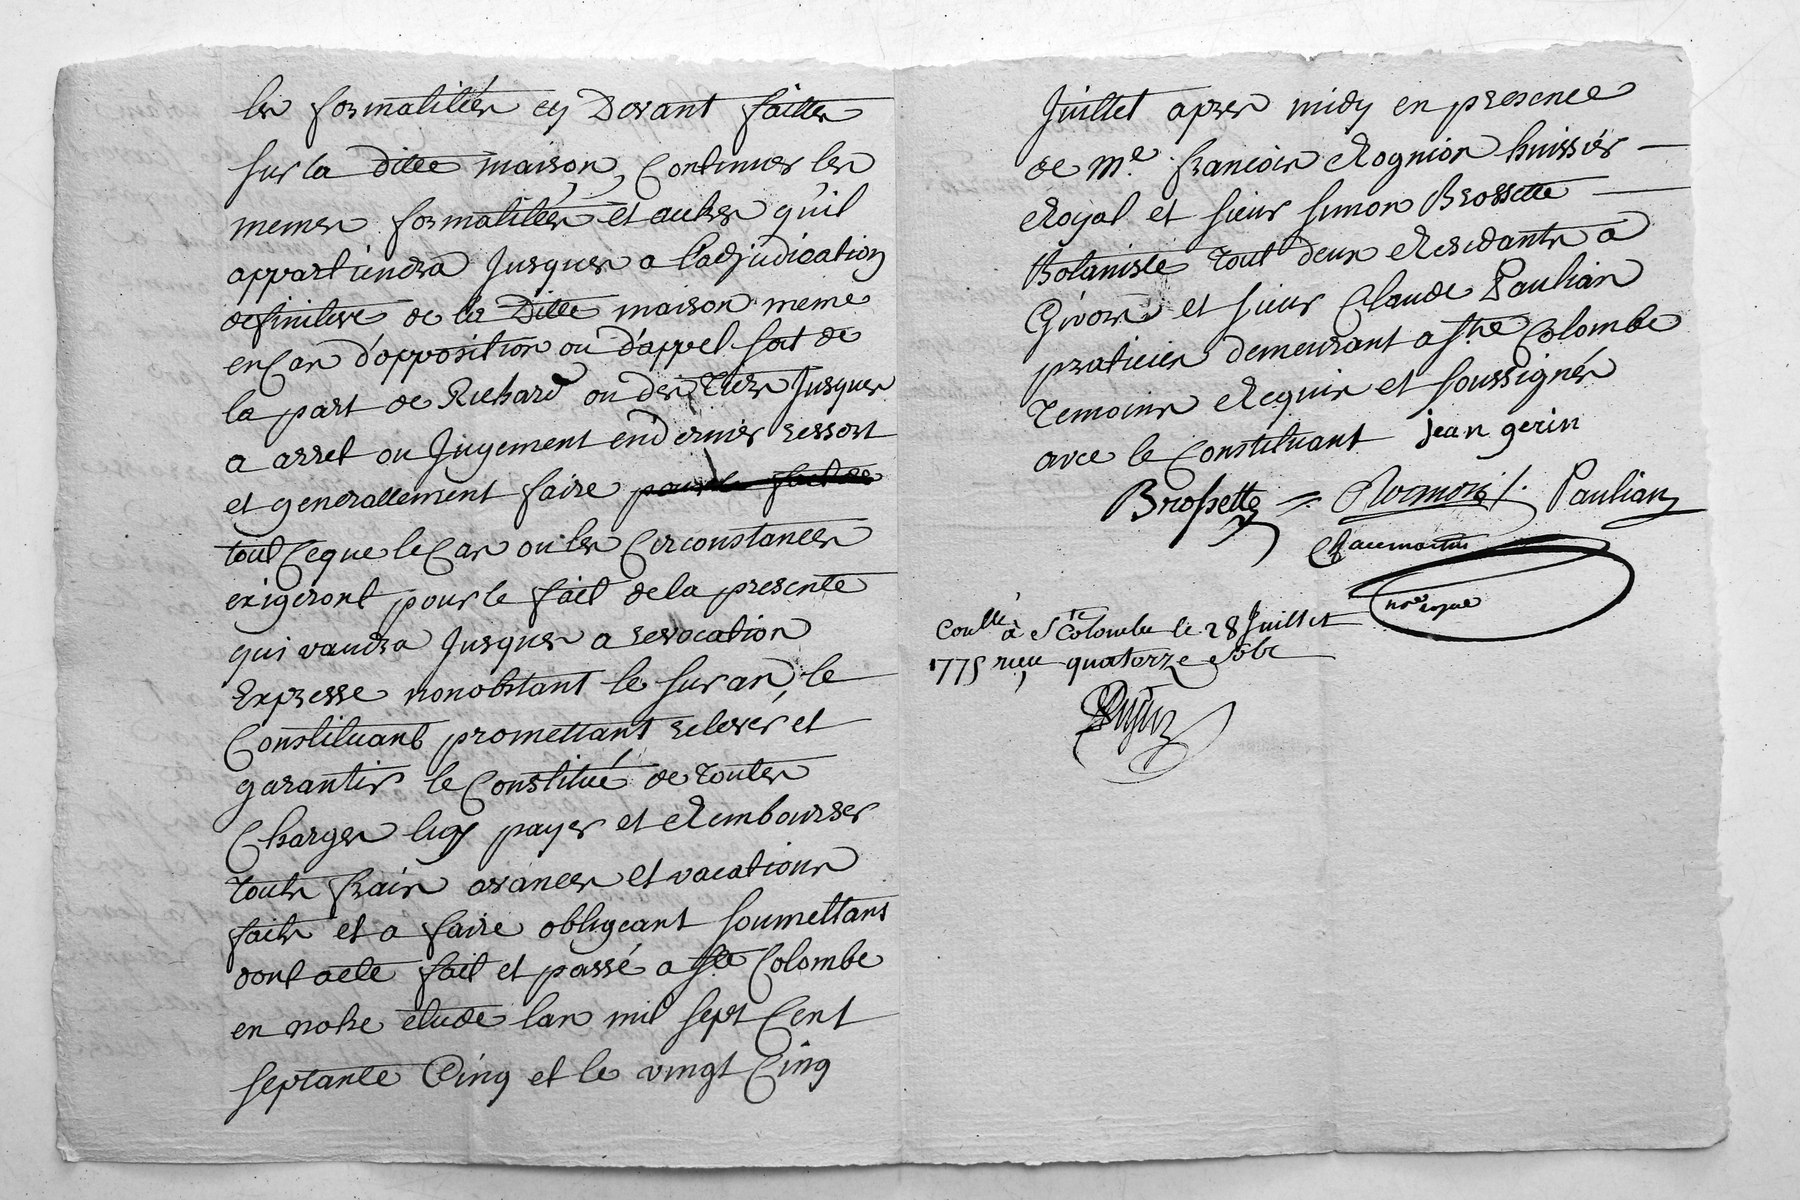 les formalitées cy Devant faittes
sur la ditte maison, Continuer les
memes formalitées et autres qu'il
appartiendra Jusques a l'adjudication
definitive de la Ditte maison meme
en Cas d'opposition ou d'appel soit de
la part de Richard ou des tiers Jusques
a arret ou Jugement en dernier ressort
et generallement faire
tout Ceque le Cas ou les Circonstances
exigeront pour le fait de la presente
qui vaudra Jusques a revocation
Expresse nonobstant le suran, le
Constituant promettant relever et
garantir le Constitué de toutes
Charges luy payer et Rembourser
touts frais avances et vacations
faits et a faire obligeant soumettant
dont acte fait et passé a Ste Colombe
en notre etude lan mil sept Cent
septante Cinq et le vingt Cinq
Juillet apres midy en presence
de Me. francois Rognion huissier
Royal et sieur simon Brossette
Botaniste tout deux Residants a
Givors et sieur Claude Paulian
praticien demeurant a Ste Colombe
temoins Requis et soussignés
avec le Constituant jean gerin
Brossette = Rognion Paulian
Chaumartin
nore royal
Conllé à Ste Colombe le 28 Juillet
1775 reçu quatorze sols